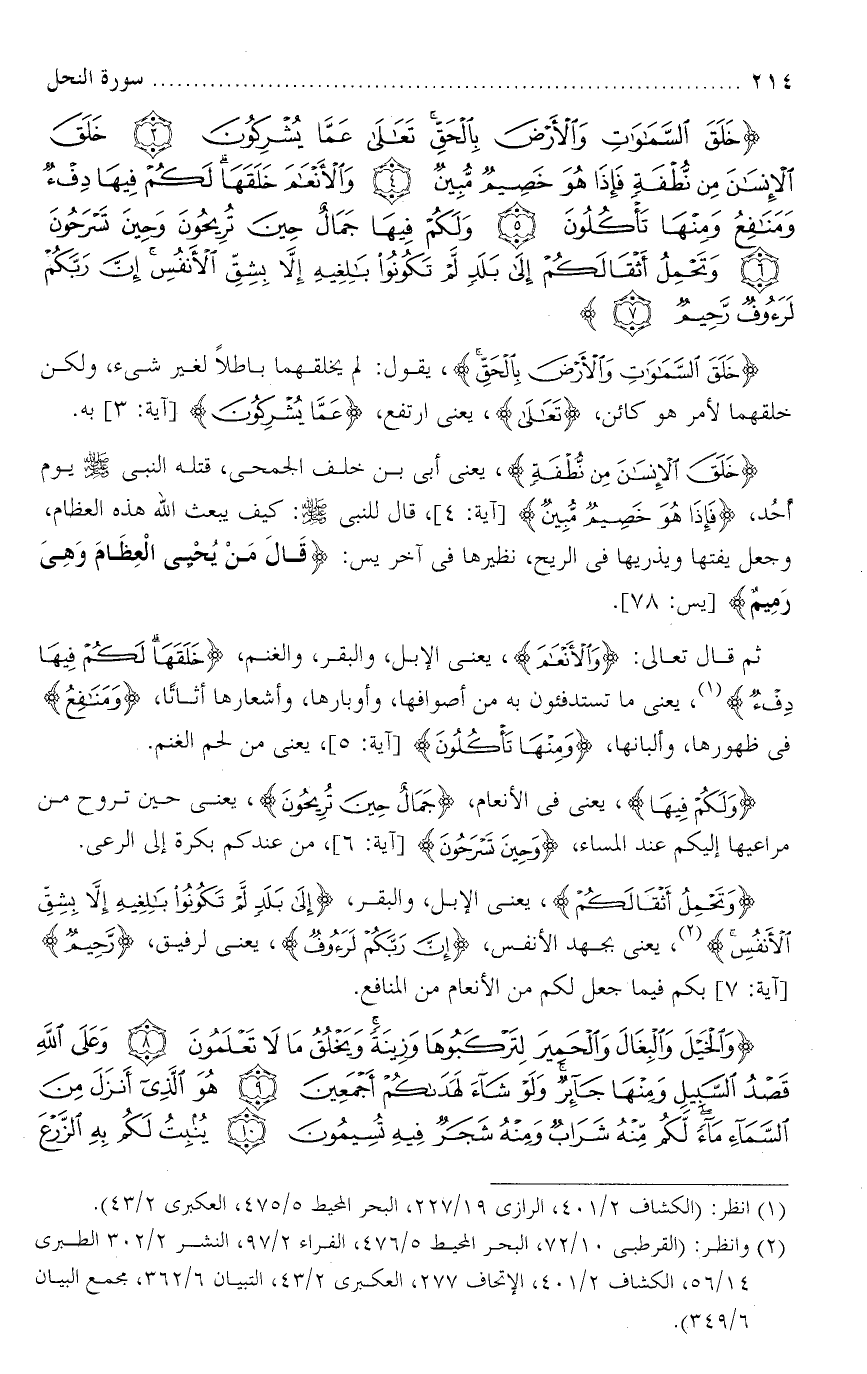 ٢١٤ ............................................................... سورة النحل
﴿خَلَقَ ٱلسَّمَٰوَٰتِ وَٱلۡأَرۡضَ بِٱلۡحَقِّۚ تَعَٰلَىٰ عَمَّا يُشۡرِكُونَ ٣ خَلَقَ
ٱلۡإِنسَٰنَ مِن نُّطۡفَةٖ فَإِذَا هُوَ خَصِيمٞ مُّبِينٞ ٤ وَٱلۡأَنۡعَٰمَ خَلَقَهَاۖ لَكُمۡ فِيهَا دِفۡءٞ
وَمَنَٰفِعُ وَمِنۡهَا تَأۡكُلُونَ ٥ وَلَكُمۡ فِيهَا جَمَالٌ حِينَ تُرِيحُونَ وَحِينَ تَسۡرَحُونَ
٦ وَتَحۡمِلُ أَثۡقَالَكُمۡ إِلَىٰ بَلَدٖ لَّمۡ تَكُونُواْ بَٰلِغِيهِ إِلَّا بِشِقِّ ٱلۡأَنفُسِۚ إِنَّ رَبَّكُمۡ
لَرَءُوفٞ رَّحِيمٞ ٧﴾
﴿خَلَقَ ٱلسَّمَٰوَٰتِ وَٱلۡأَرۡضَ بِٱلۡحَقِّۚ﴾، يقول: لم يخلقهما باطلاً لغير شىء، ولكن
خلقهما لأمر هو كائن، ﴿تَعَٰلَىٰ﴾، يعنى ارتفع، ﴿عَمَّا يُشۡرِكُونَ﴾ [آية: ٣] به.
﴿خَلَقَ ٱلۡإِنسَٰنَ مِن نُّطۡفَةٖ﴾، يعنى أبى بن خلف الجمحى، قتله النبى ﷺ يوم
أُحُد، ﴿فَإِذَا هُوَ خَصِيمٞ مُّبِينٞ﴾ [آية: ٤]، قال للنبى ﷺ: كيف يبعث الله هذه العظام،
وجعل يفتها ويذريها فى الريح، نظيرها فى آخر يس: ﴿قَالَ مَنْ يُحْيِى الْعِظَامَ وَهِىَ
رَمِيمٌ﴾ [يس: ٧٨].
ثم قال تعالى: ﴿وَٱلۡأَنۡعَٰمَ﴾، يعنى الإبل، والبقر، والغنم، ﴿خَلَقَهَاۖ لَكُمۡ فِيهَا
دِفۡءٞ﴾(١)، يعنى ما تستدفئون به من أصوافها، وأوبارها، وأشعارها أثاثًا، ﴿وَمَنَٰفِعُ﴾
فى ظهورها، وألبانها، ﴿وَمِنۡهَا تَأۡكُلُونَ﴾ [آية: ٥]، يعنى من لحم الغنم.
﴿وَلَكُمۡ فِيهَا﴾، يعنى فى الأنعام، ﴿جَمَالٌ حِينَ تُرِيحُونَ﴾، يعنى حين تروح من
مراعيها إليكم عند المساء، ﴿وَحِينَ تَسۡرَحُونَ﴾ [آية: ٦]، من عندكم بكرة إلى الرعى.
﴿وَتَحۡمِلُ أَثۡقَالَكُمۡ﴾، يعنى الإبل، والبقر، ﴿إِلَىٰ بَلَدٖ لَّمۡ تَكُونُواْ بَٰلِغِيهِ إِلَّا بِشِقِّ
ٱلۡأَنفُسِۚ﴾(٢)، يعنى بجهد الأنفس، ﴿إِنَّ رَبَّكُمۡ لَرَءُوفٞ﴾، يعنى لرفيق، ﴿رَّحِيمٞ﴾
[آية: ٧] بكم فيما جعل لكم من الأنعام من المنافع.
﴿وَٱلۡخَيۡلَ وَٱلۡبِغَالَ وَٱلۡحَمِيرَ لِتَرۡكَبُوهَا وَزِينَةٗۚ وَيَخۡلُقُ مَا لَا تَعۡلَمُونَ ٨ وَعَلَى ٱللَّهِ
قَصۡدُ ٱلسَّبِيلِ وَمِنۡهَا جَآئِرٞۚ وَلَوۡ شَآءَ لَهَدَىٰكُمۡ أَجۡمَعِينَ ٩ هُوَ ٱلَّذِيٓ أَنزَلَ مِنَ
ٱلسَّمَآءِ مَآءٗۖ لَّكُم مِّنۡهُ شَرَابٞ وَمِنۡهُ شَجَرٞ فِيهِ تُسِيمُونَ ١٠ يُنۢبِتُ لَكُم بِهِ ٱلزَّرۡعَ
(١) انظر: (الكشاف ٤٠١/٢، الرازى ٢٢٧/١٩، البحر المحيط ٤٧٥/٥، العكبرى ٤٣/٢).
(٢) وانظر: (القرطبى ٧٢/١٠، البحر المحيط ٤٧٦/٥، الفراء ٩٧/٢، النشر ٣٠٢/٢ الطبرى
٥٦/١٤، الكشاف ٤٠١/٢، الإتحاف ٢٧٧، العكبرى ٤٣/٢، التبيان ٣٦٢/٦، مجمع البيان
٣٤٩/٦).